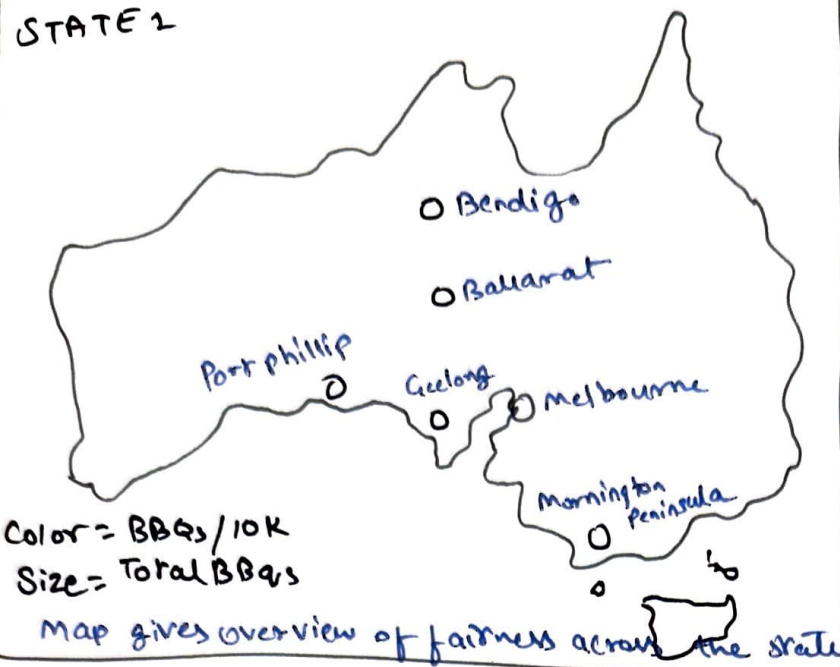 STATE 1
Bendigo
Ballarat
Port phillip
Geelong
Melbourne
Mornington
Peninsula
Color = BBQs/10K
Size = Total BBQs
Map gives overview of fairness across the state